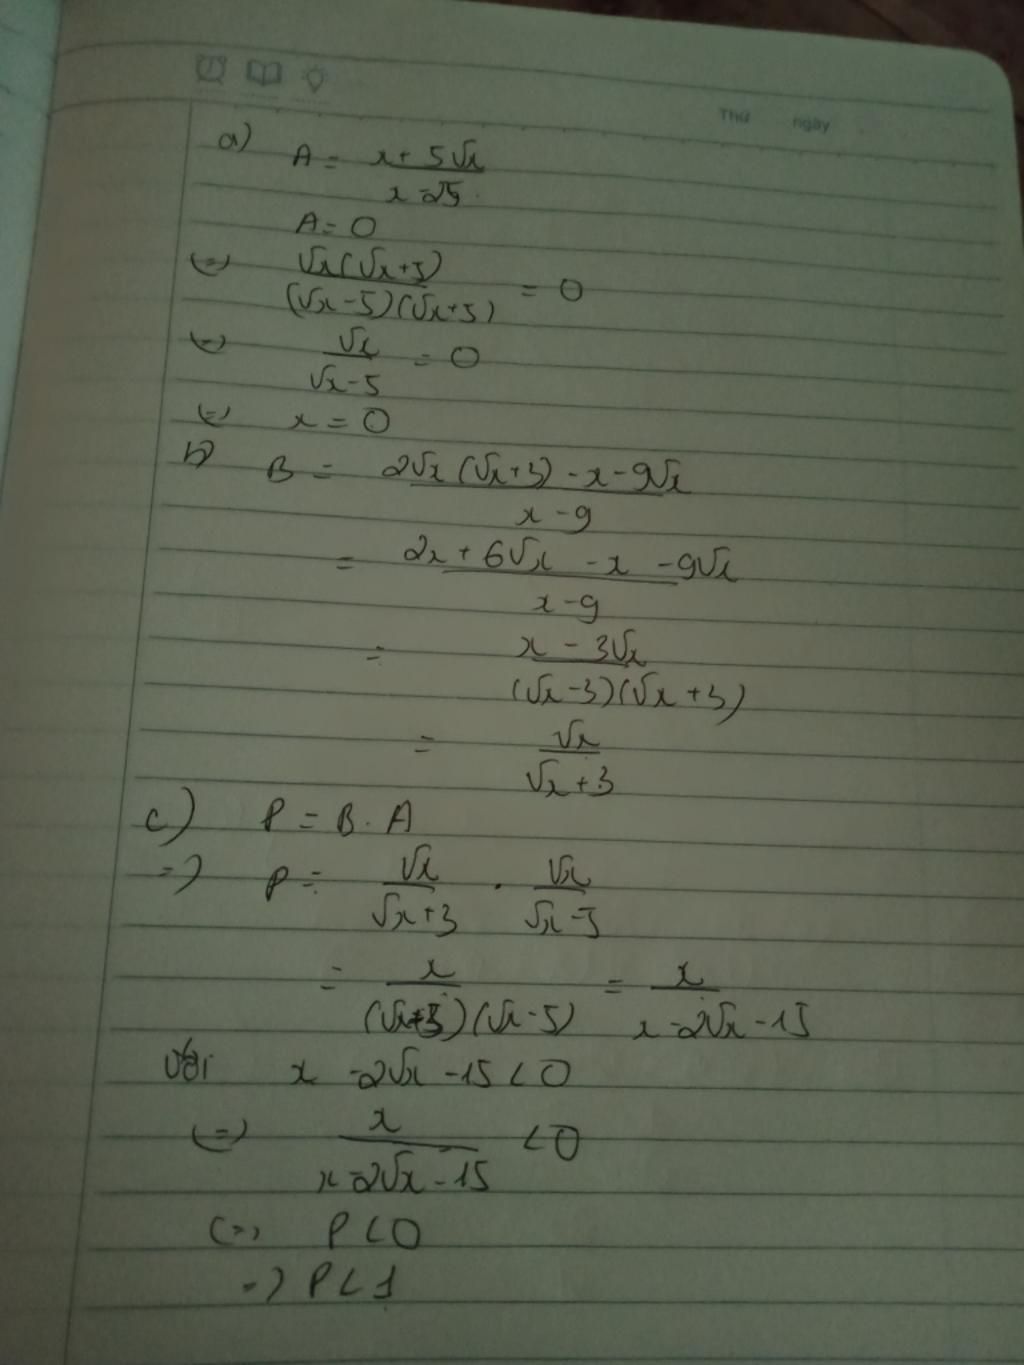 Thứ ngày
a) A = (x + 5√x)/(x - 25)
A = 0
(=) √x(√x+5)/((√x-5)(√x+5)) = 0
(=) √x/(√x-5) = 0
(=) x = 0
b) B = (2√x(√x+3) - x - 9√x)/(x - 9)
= (2x + 6√x - x - 9√x)/(x - 9)
= (x - 3√x)/((√x-3)(√x+3))
= √x/(√x+3)
c) P = B . A
=) P = √x/(√x+3) . √x/(√x-5)
= x/((√x+3)(√x-5)) = x/(x-2√x-15)
Với x - 2√x - 15 < 0
(=) x/(x-2√x-15) < 0
(=) P < 0
=) P < 1